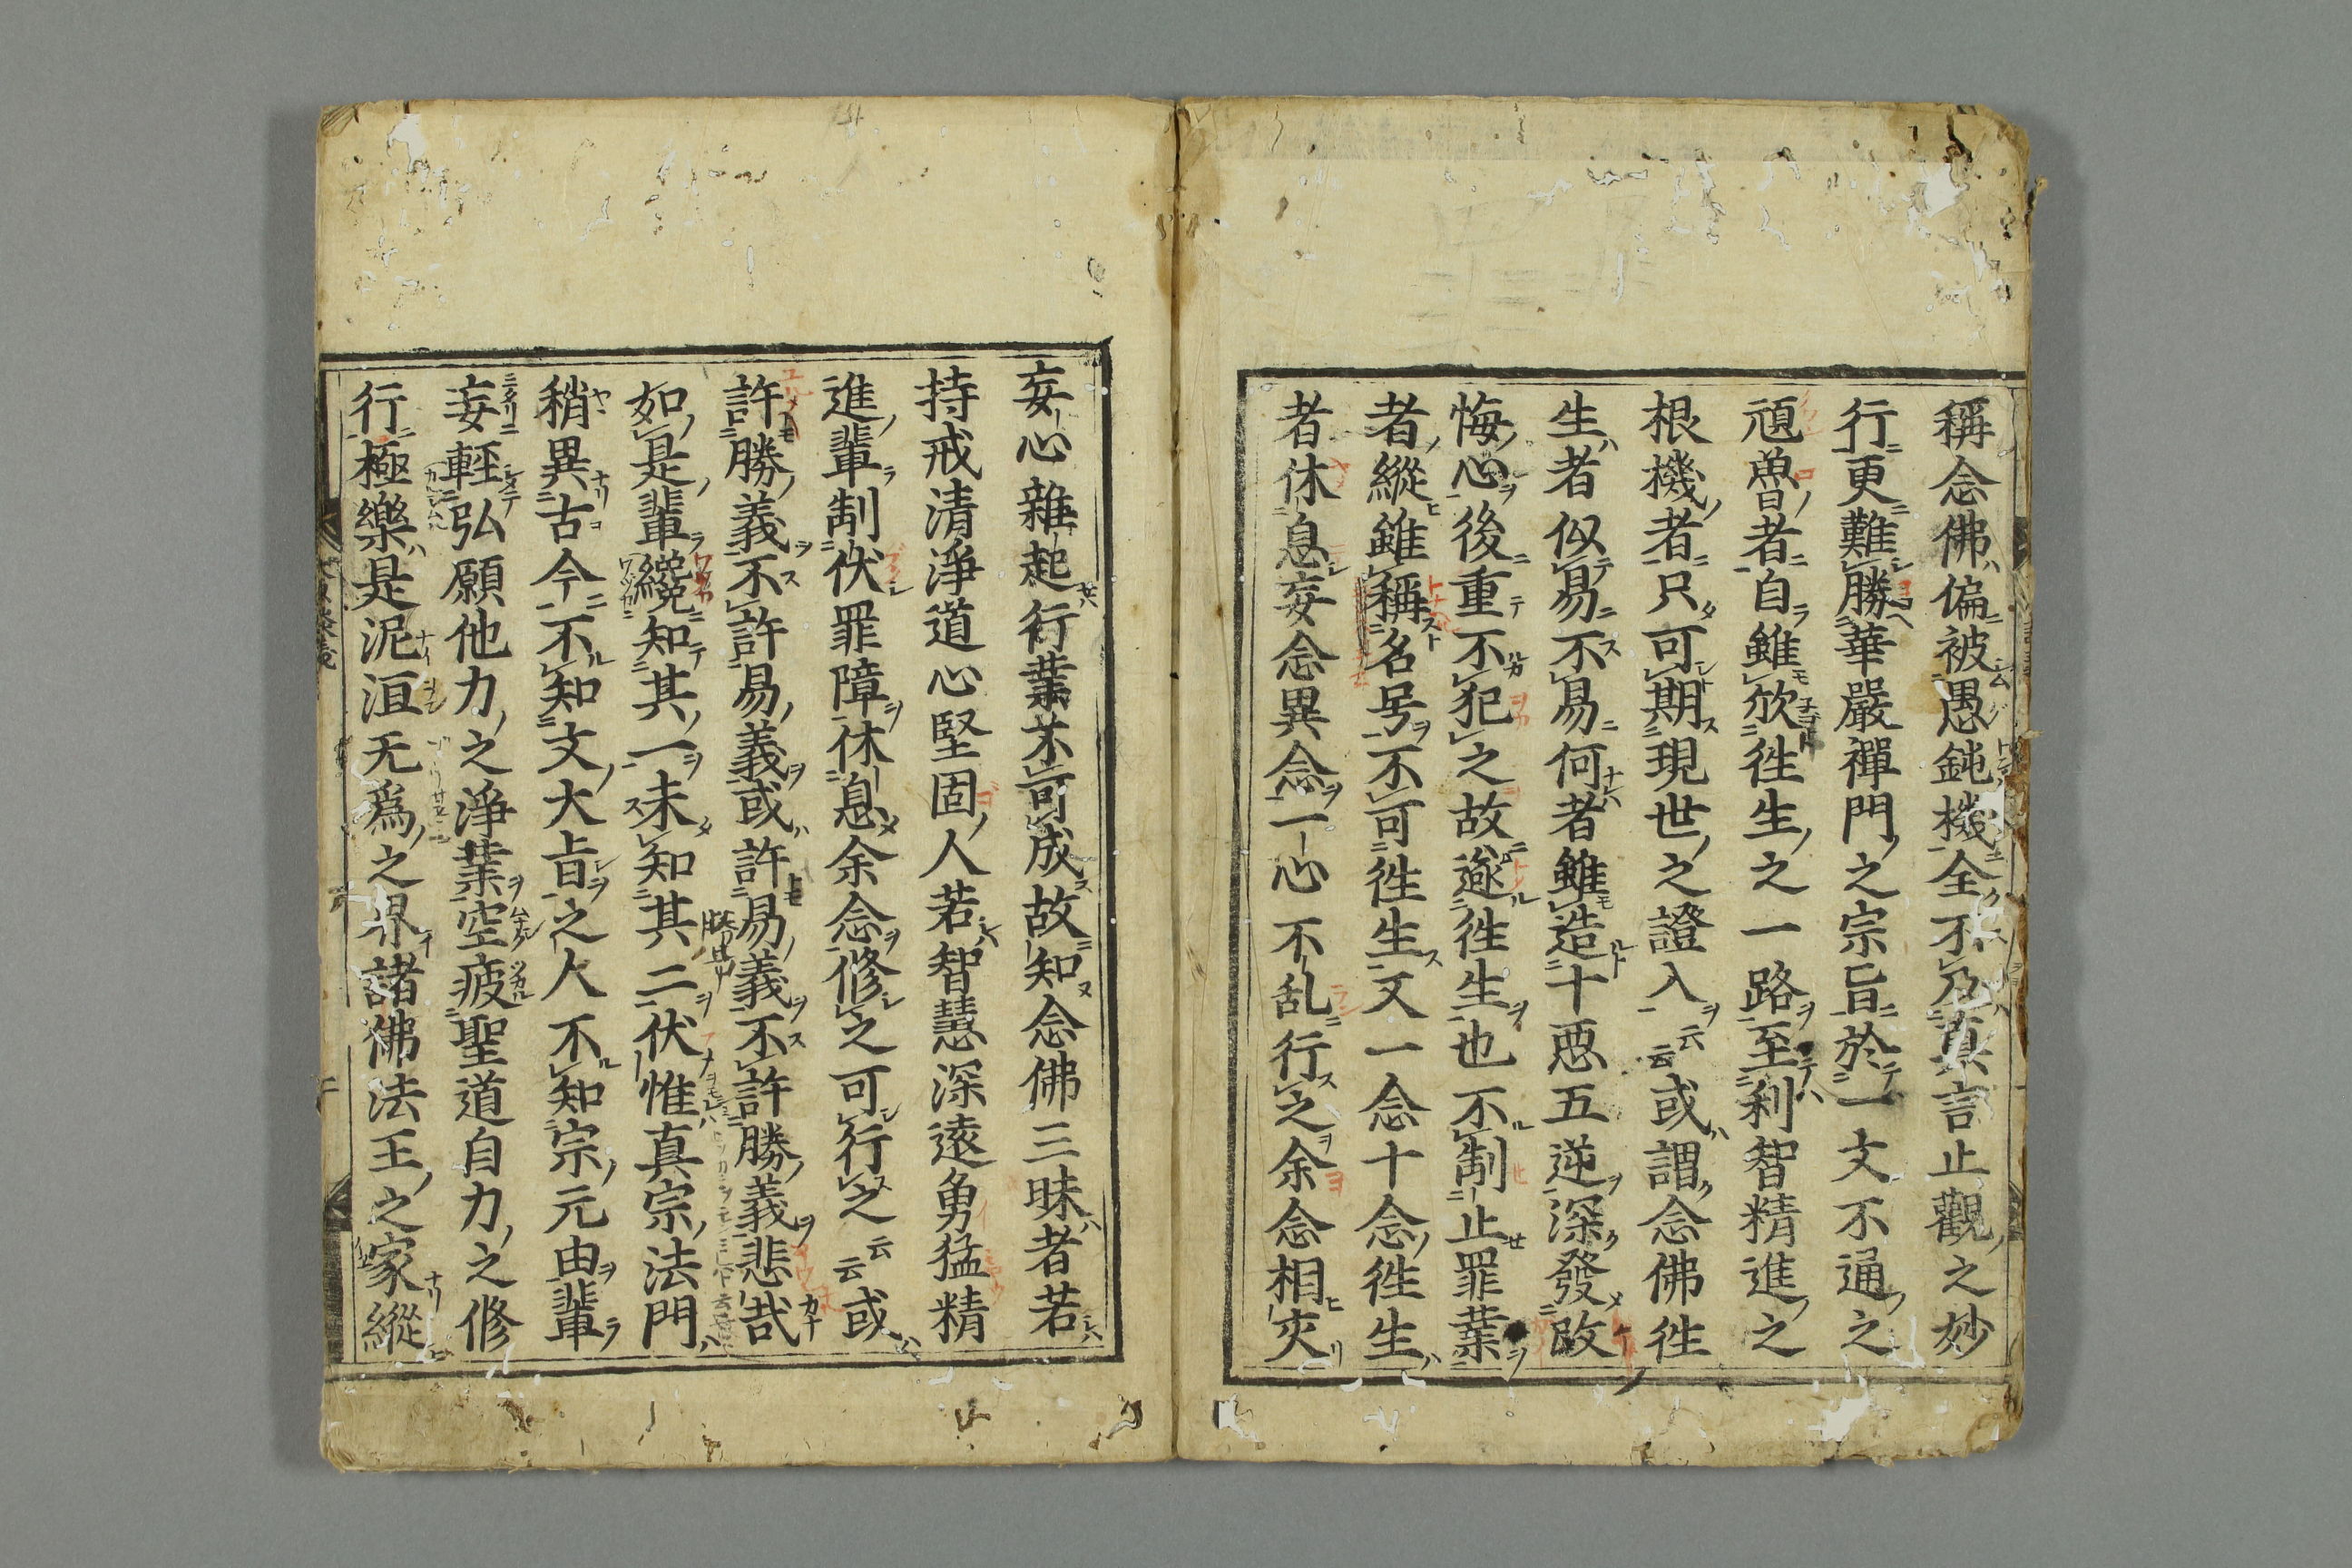 稱念佛偏被愚鈍機全不及真言止觀之妙
行更難勝華嚴禪門之宗旨於一文不通之
頑魯者自雖欣徃生之一路至利智精進之
根機者只可期現世之證入云云或謂念佛徃
生者似易不易何者雖造十惡五逆深發改
悔心後重不犯之故遂徃生也不制止罪業
者縱雖稱名号不可徃生文一念十念徃生
者休息妄念異念一心不乱行之余念相夾
妄心雜起行業不可成故知念佛三昧者若
持戒清淨道心堅固人若智慧深遠勇猛精
進輩制伏罪障休息余念修之可行之云云或
許勝義不許易義或許易義不許勝義悲哉
如是輩纔知其一未知其二伏惟真宗法門
稍異古今不知文大旨之人不知宗元由輩
妄輕弘願他力之淨業空疲聖道自力之修
行極樂是泥洹无為之界諸佛法王之家縱